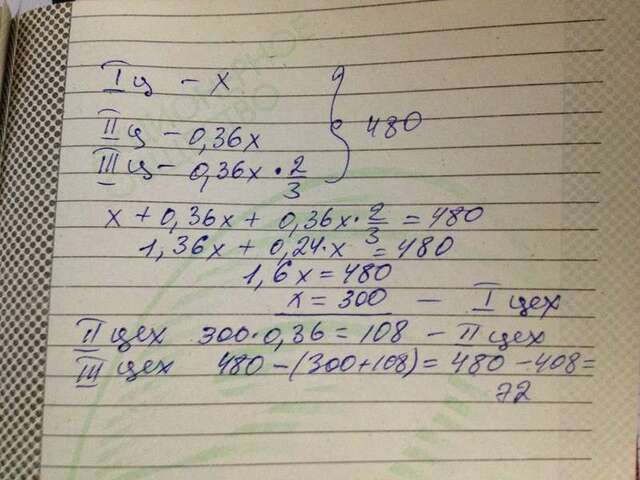 I ц - x
II ц - 0,36x
III ц - 0,36x · 2/3
480
x + 0,36x + 0,36x · 2/3 = 480
1,36x + 0,24·x = 480
1,6x = 480
x = 300 - I цех
II цех 300·0,36 = 108 - II цех
III цех 480 - (300+108) = 480 - 408 =
72